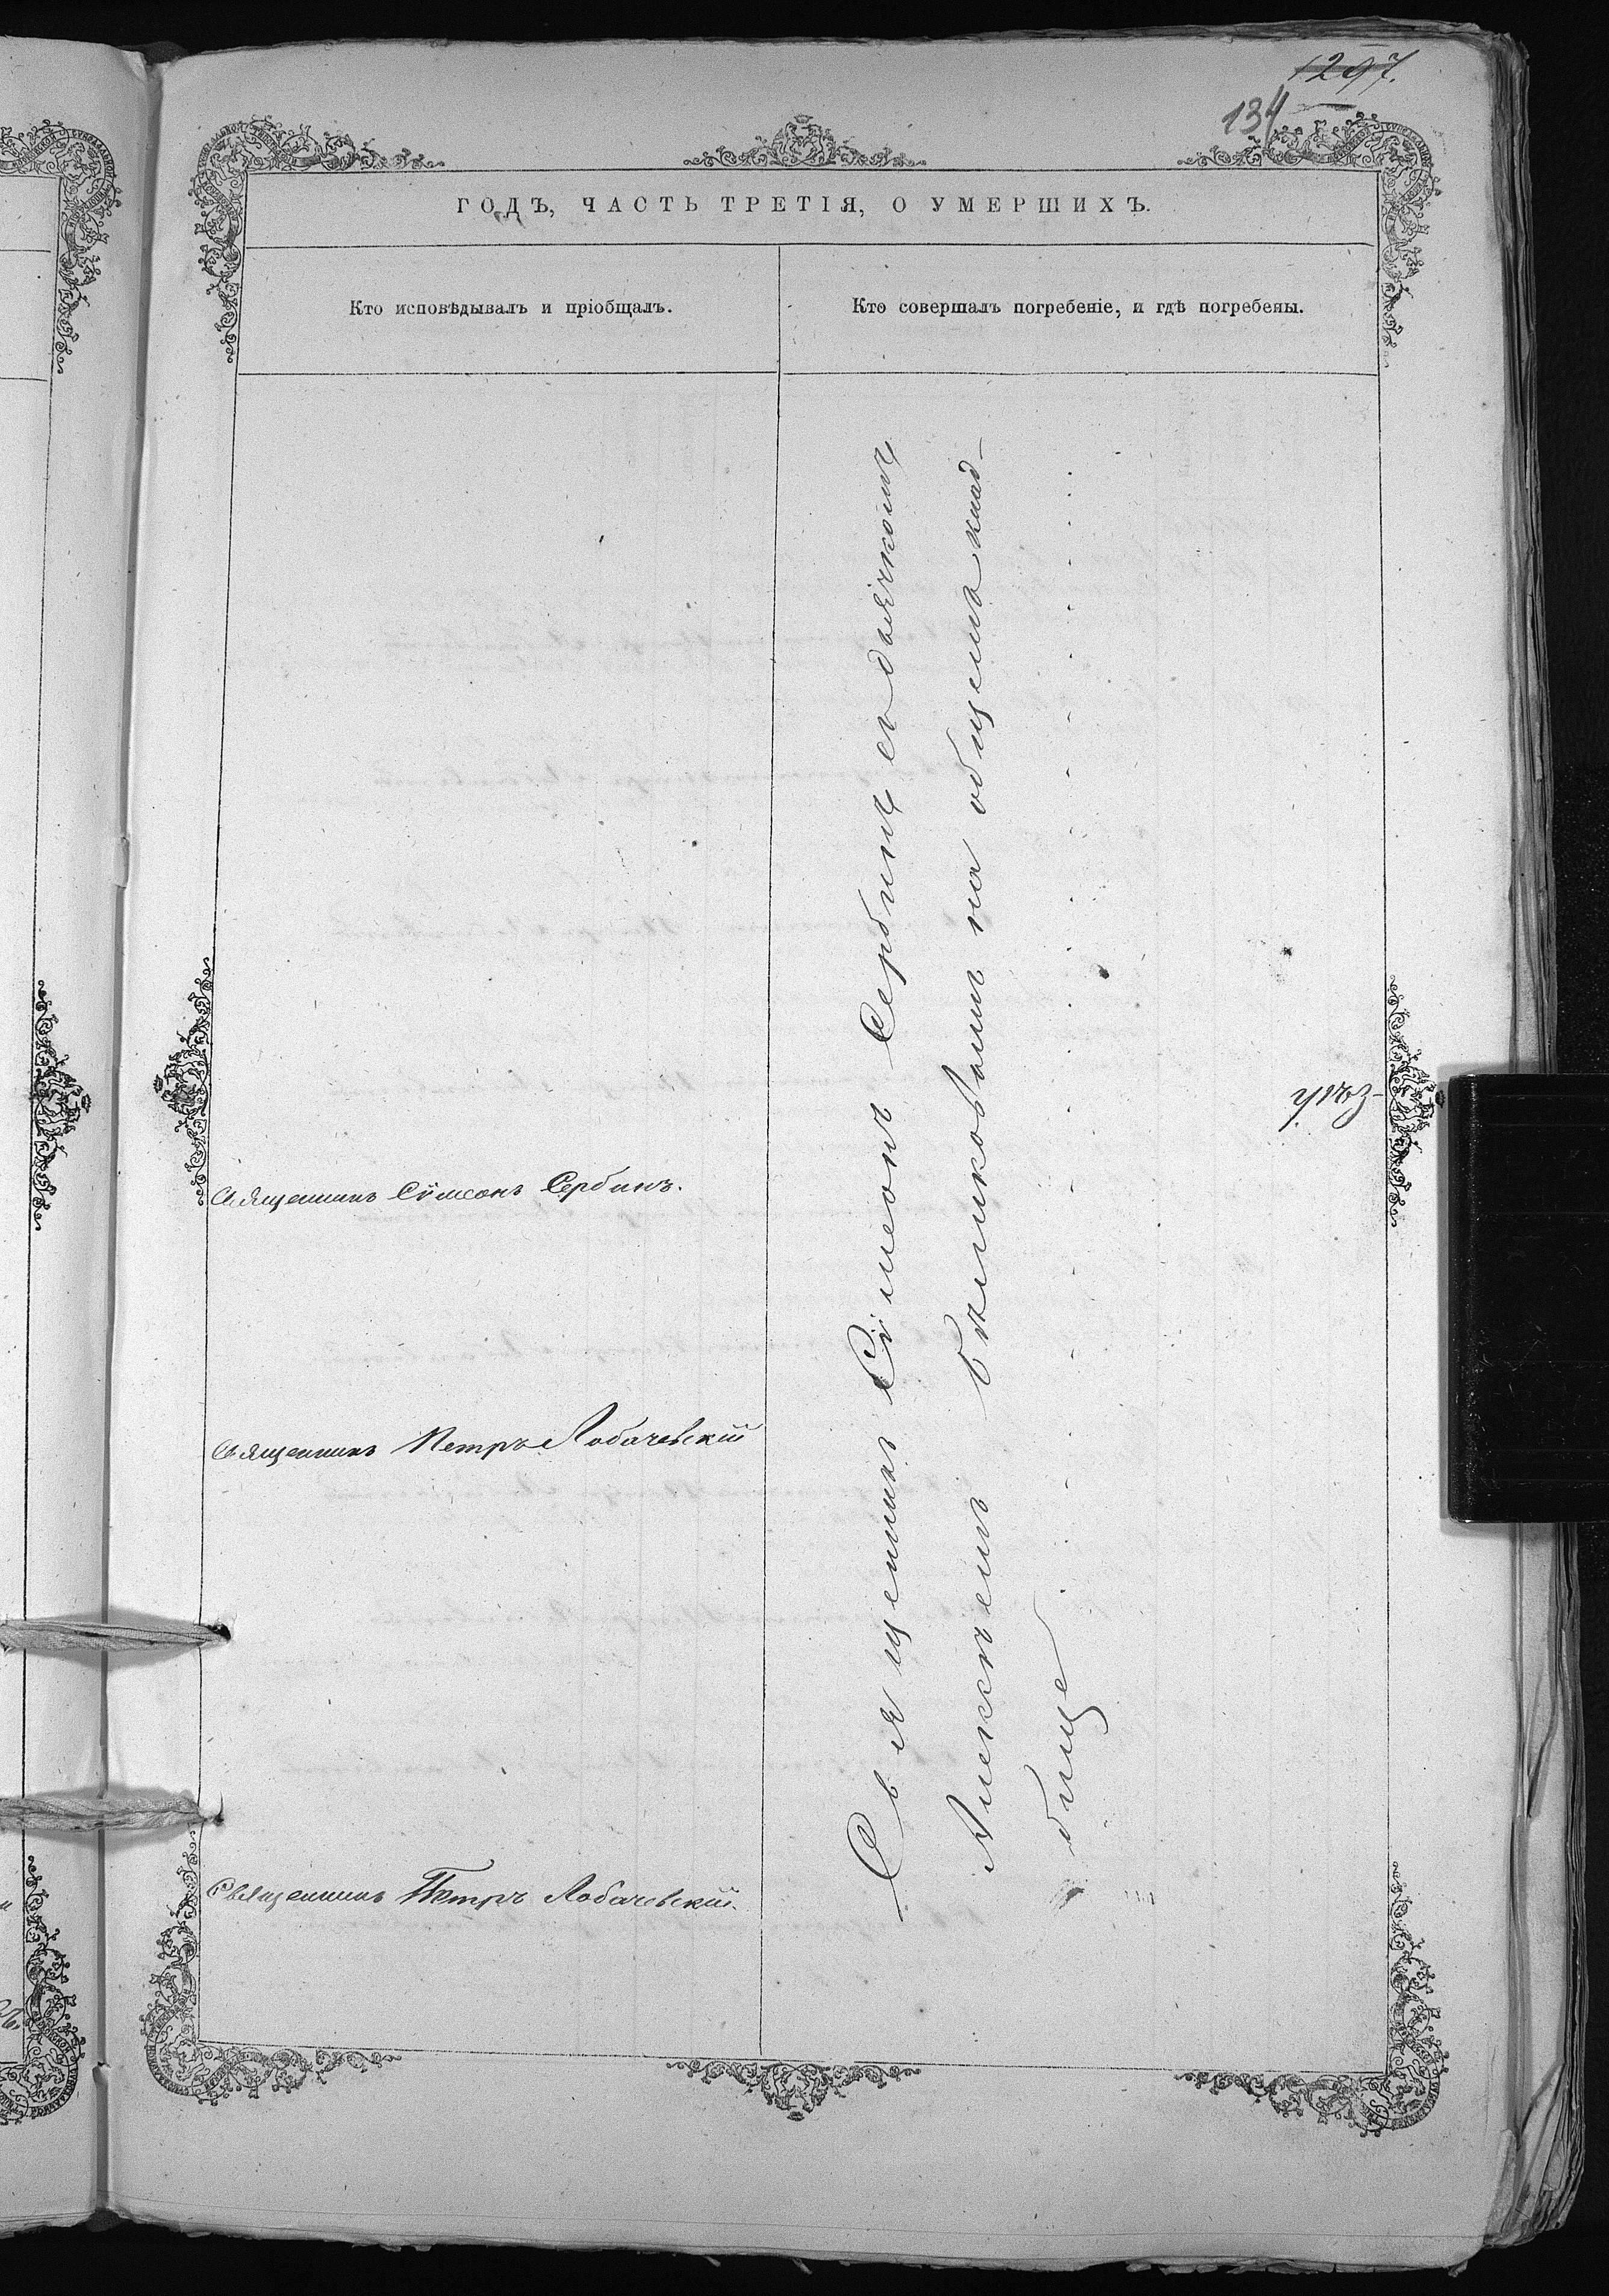 1297.
134
ГОДЪ, ЧАСТЬ ТРЕТІЯ, О УМЕРШИХЪ.
Кто исповѣдывалъ и пріобщалъ.
Кто совершалъ погребеніе, и гдѣ погребены.
Священникъ Сѵмеонъ Сербинъ.
Священникъ Петръ Лобачевскій
Священникъ Петръ Лобачевскій.
Священникъ Сѵмеонъ Сербинъ съ дьячкомъ
Алексѣемъ Бѣликовымъ на общемъ клад-
бищѣ